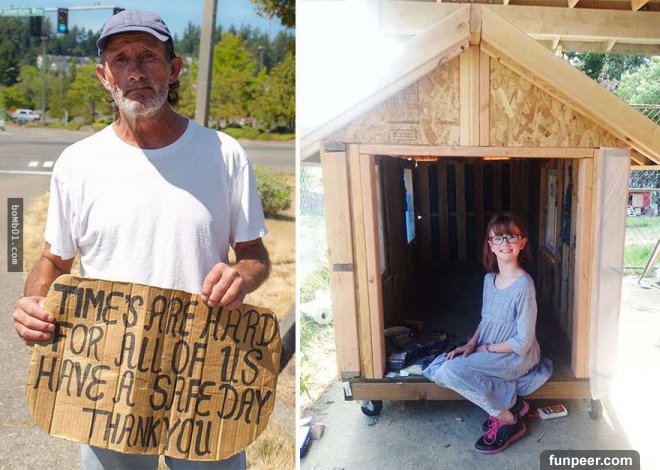 TIME'S ARE HARD
FOR ALL OF US
HAVE A SAFE DAY
THANK YOU
boMb01.com
funpeer.com